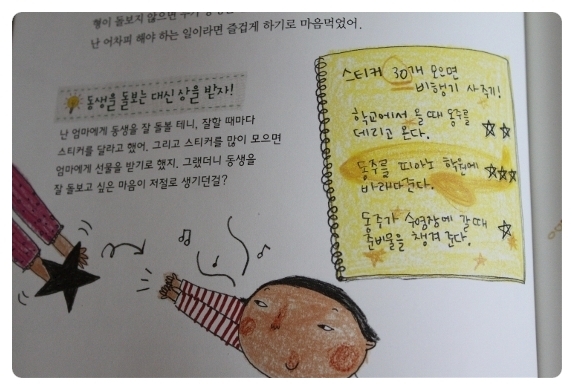 형이 돌보지 않으면 누가
난 어차피 해야 하는 일이라면 즐겁게 하기로 마음먹었어.
동생을 돌보는 대신 상을 받자!
난 엄마에게 동생을 잘 돌볼 테니, 잘할 때마다
스티커를 달라고 했어. 그리고 스티커를 많이 모으면
엄마에게 선물을 받기로 했지. 그랬더니 동생을
잘 돌보고 싶은 마음이 저절로 생기던걸?
스티커 30개 모으면
비행기 사주기!
학교에서 올 때 동주를
데리고 온다.
동주를 피아노 학원에
바래다준다.
동주가 수영장에 갈 때
준비물을 챙겨 준다.